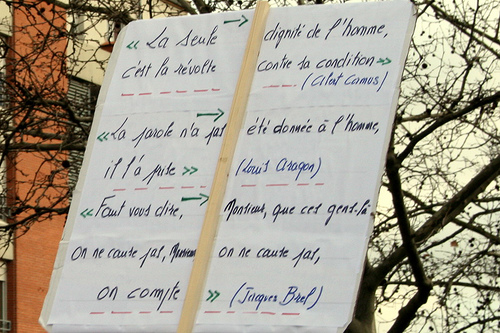 « La seule → dignité de l'homme,
c'est la révolte contre sa condition »
(Albert Camus)
« La parole n'a pas → été donnée à l'homme,
il l'a prise » (Louis Aragon)
« Faut vous dire, → Monsieur, que ces gens-là
on ne cause pas, Monsieur on ne cause pas,
on compte » (Jacques Brel)